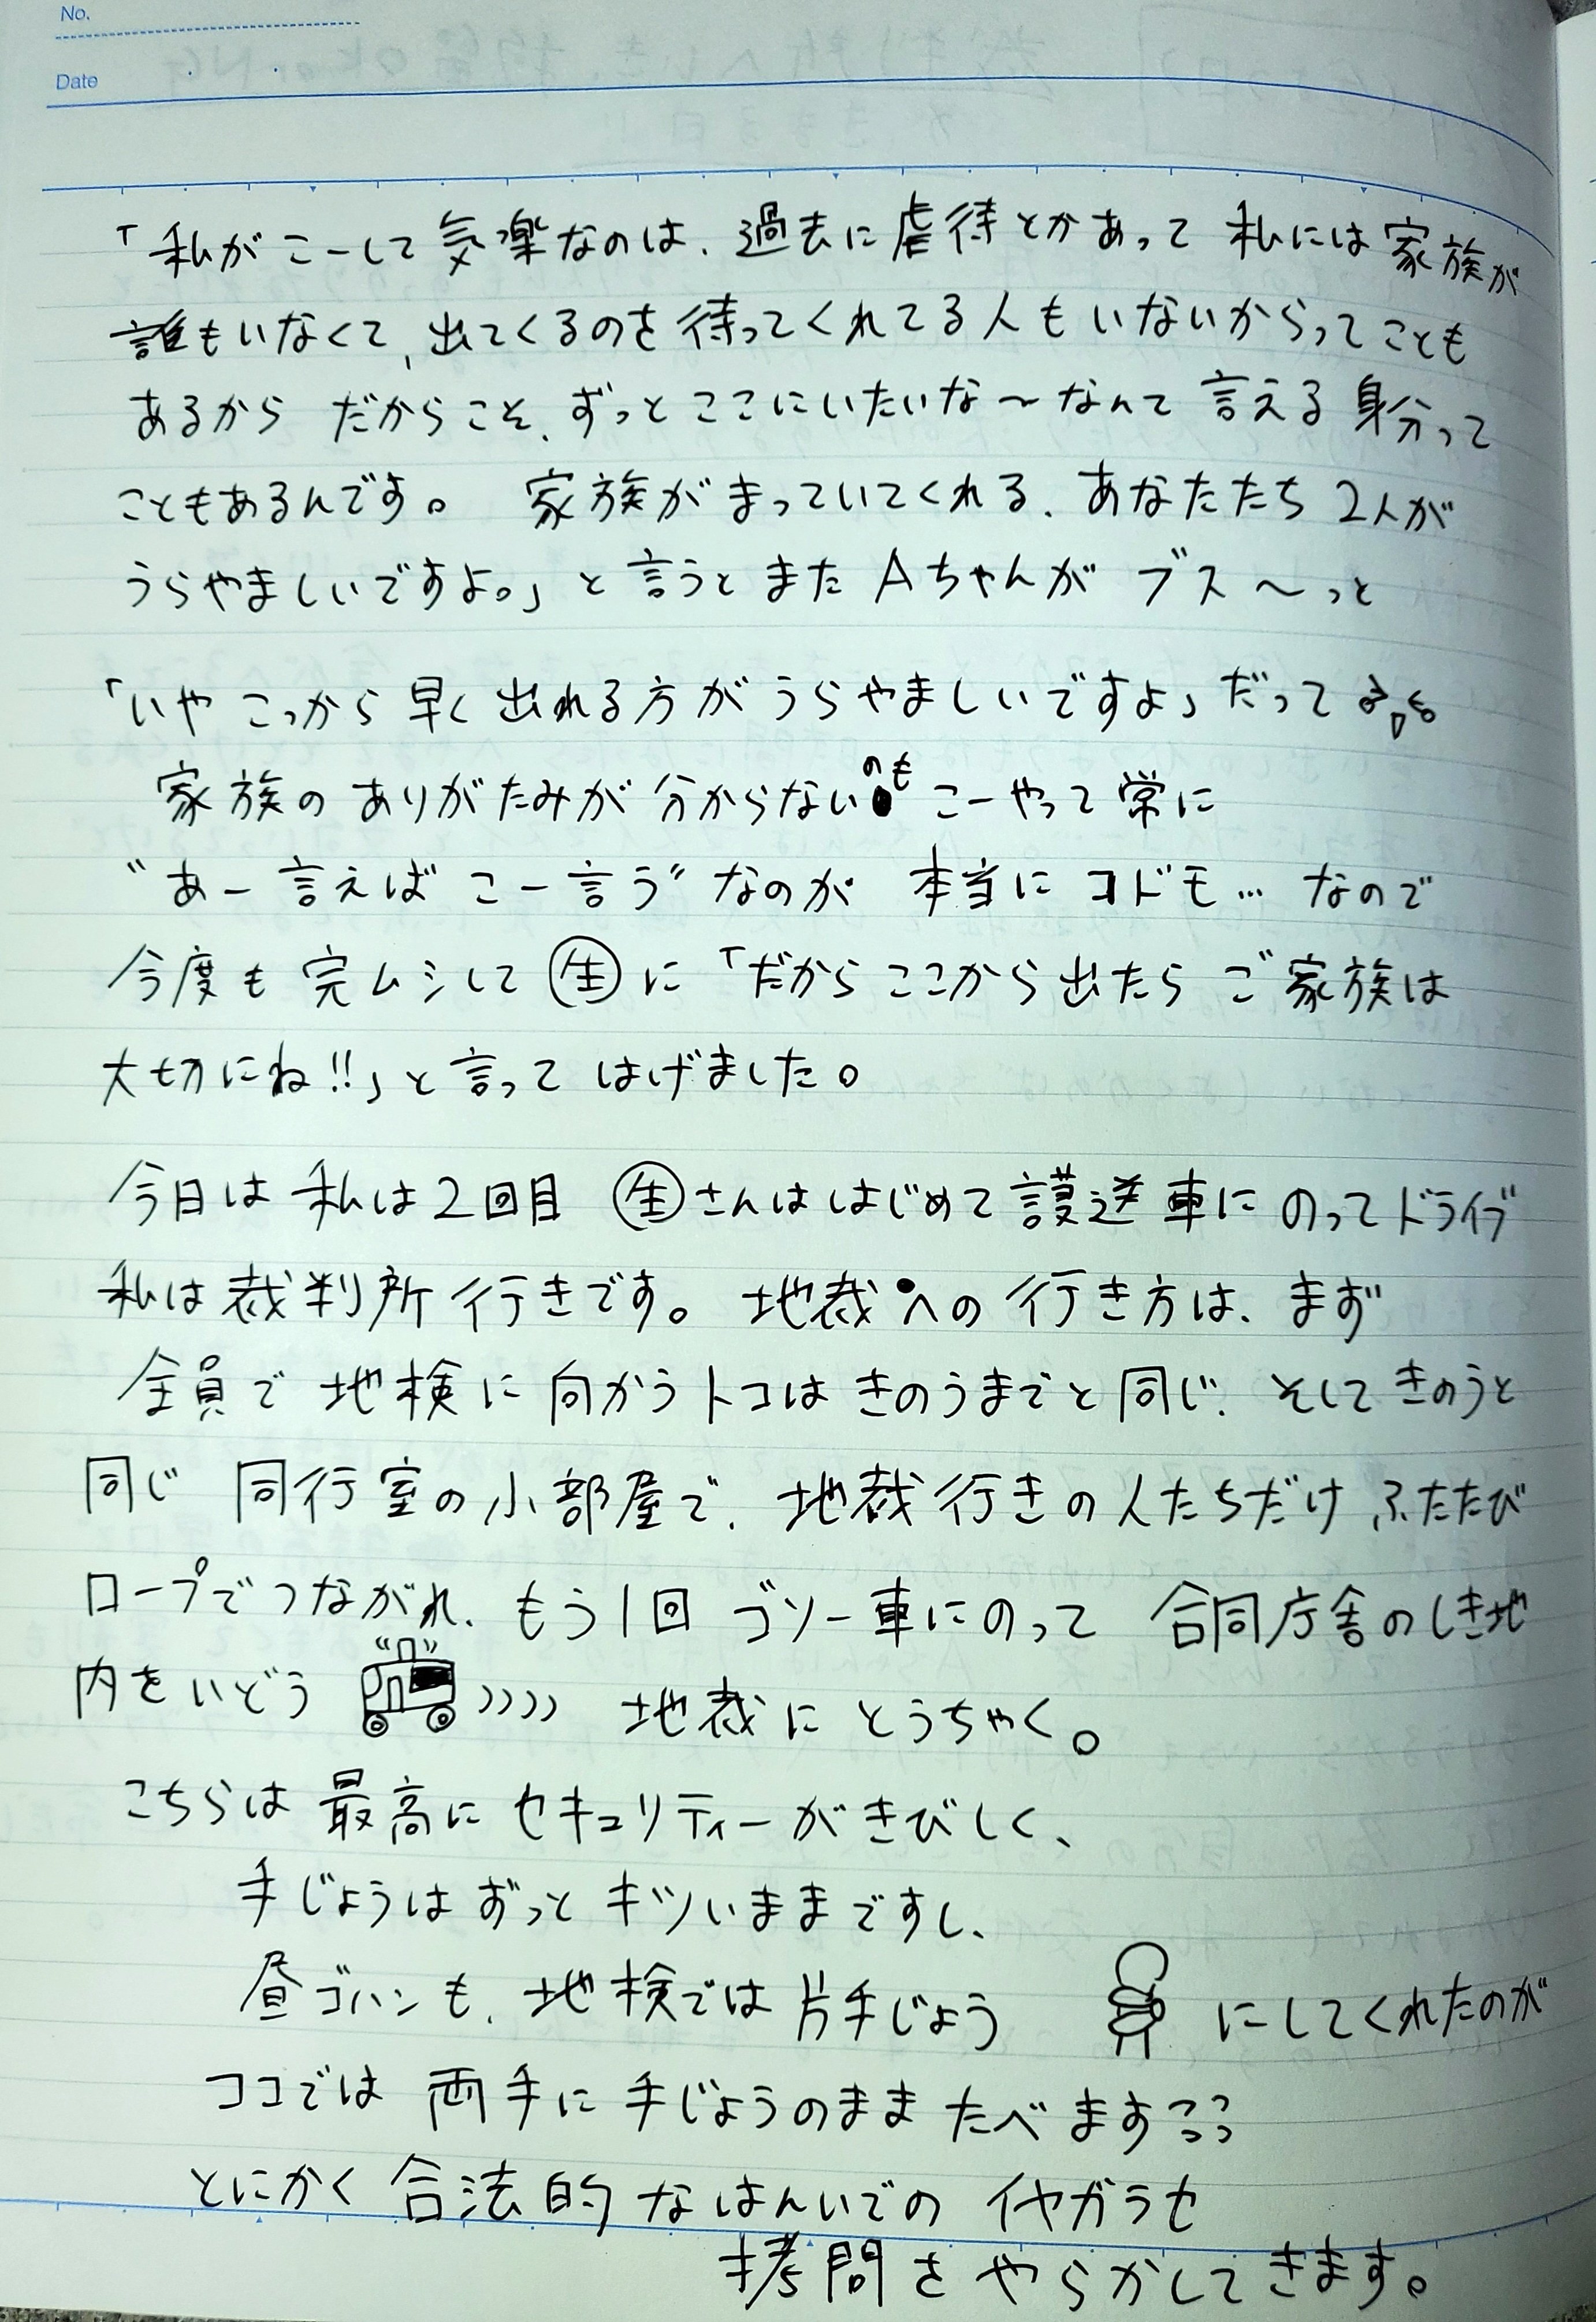 No.
Date
「私がこーして気楽なのは、過去に虐待とかあって私には家族が
誰もいなくて、出てくるのを待ってくれてる人もいないからってことも
あるから だからこそ、ずっとここにいたいな〜なんて言える身分って
こともあるんです。 家族がまっていてくれる、あなたたち2人が
うらやましいですよ。」と言うとまたAちゃんがブス〜っと
「いやこっから早く出れる方がうらやましいですよ」だって
家族のありがたみが分からないのもこーやって常に
"あー言えばこー言う"なのが 本当にコドモ… なので
今度も完ムシして㊤に「だからここから出たらご家族は
大切にね!!」と言ってはげました。
今日は私は2回目 生さんははじめて護送車にのってドライブ
私は裁判所行きです。 地裁への行き方は、まず
全員で地検に向かうトコはきのうまでと同じ、そしてきのうと
同じ 同行室の小部屋で、地裁行きの人たちだけふたたび
ロープでつながれ、もう1回ゴソー車にのって 合同庁舎のしき地
内をいどう 地裁にとうちゃく。
こちらは最高にセキュリティーがきびしく、
手じょうはずっとキツいままですし、
昼ゴハンも、地検では片手じょう にしてくれたのが
ココでは両手に手じょうのままたべます
とにかく合法的なはんいでのイヤガラセ
拷問をやらかしてきます。